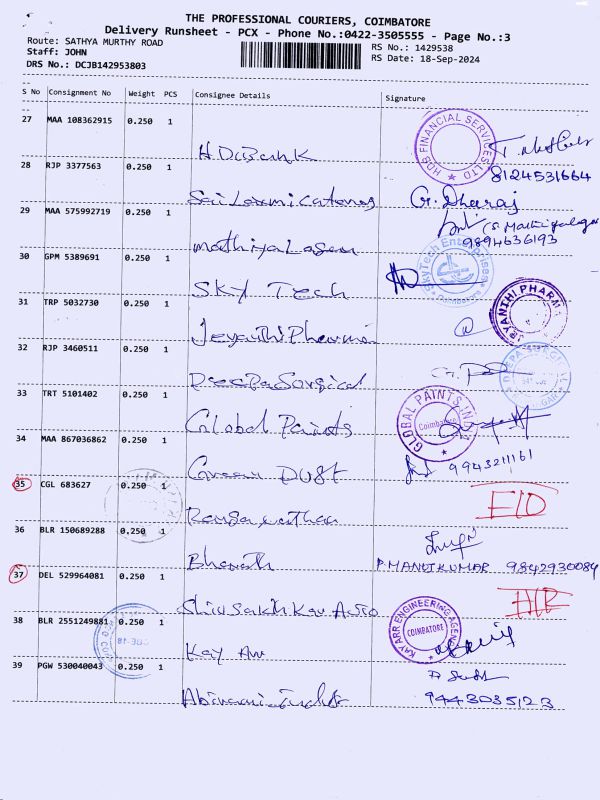 THE PROFESSIONAL COURIERS, COIMBATORE
Delivery Runsheet - PCX - Phone No.:0422-3505555 - Page No.:3
Route: SATHYA MURTHY ROAD
RS No.: 1429538
Staff: JOHN
RS Date: 18-Sep-2024
DRS No.: DCJB142953803
S No Consignment No Weight PCS Consignee Details Signature
27 MAA 108362915 0.250 1
HDB FINANCIAL SERVICES LTD
H.D.B.ank
8124531664
28 RJP 3377563 0.250 1
Sai Laxmi Cations G. Dharaj
29 MAA 575992719 0.250 1
9894636193
mathiyalagan
30 GPM 5389691 0.250 1
SkyTech Enterprises
Coimbatore
SKY Tech
31 TRP 5032730 0.250 1
JEYANTHI PHARMA
Jeyanthi Pharma
32 RJP 3460511 0.250 1
DEEPA SURGICAL
Deepa Sorgical
33 TRT 5101402 0.250 1
GLOBAL PAINTS INDIA
Coimbatore
Global Paints
34 MAA 867036862 0.250 1
9943211161
Green DUST
35 CGL 683627 0.250 1
Ranganathan
36 BLR 150689288 0.250 1
Bharath P. MANIKUMAR 9842930084
37 DEL 529964081 0.250 1
Shiv Sakthi Kav Auto
38 BLR 2551249881 0.250 1
KAY ARR ENGINEERING AGENCY
COIMBATORE
Kay Arr
39 PGW 530040043 0.250 1
Abirami
9443035123